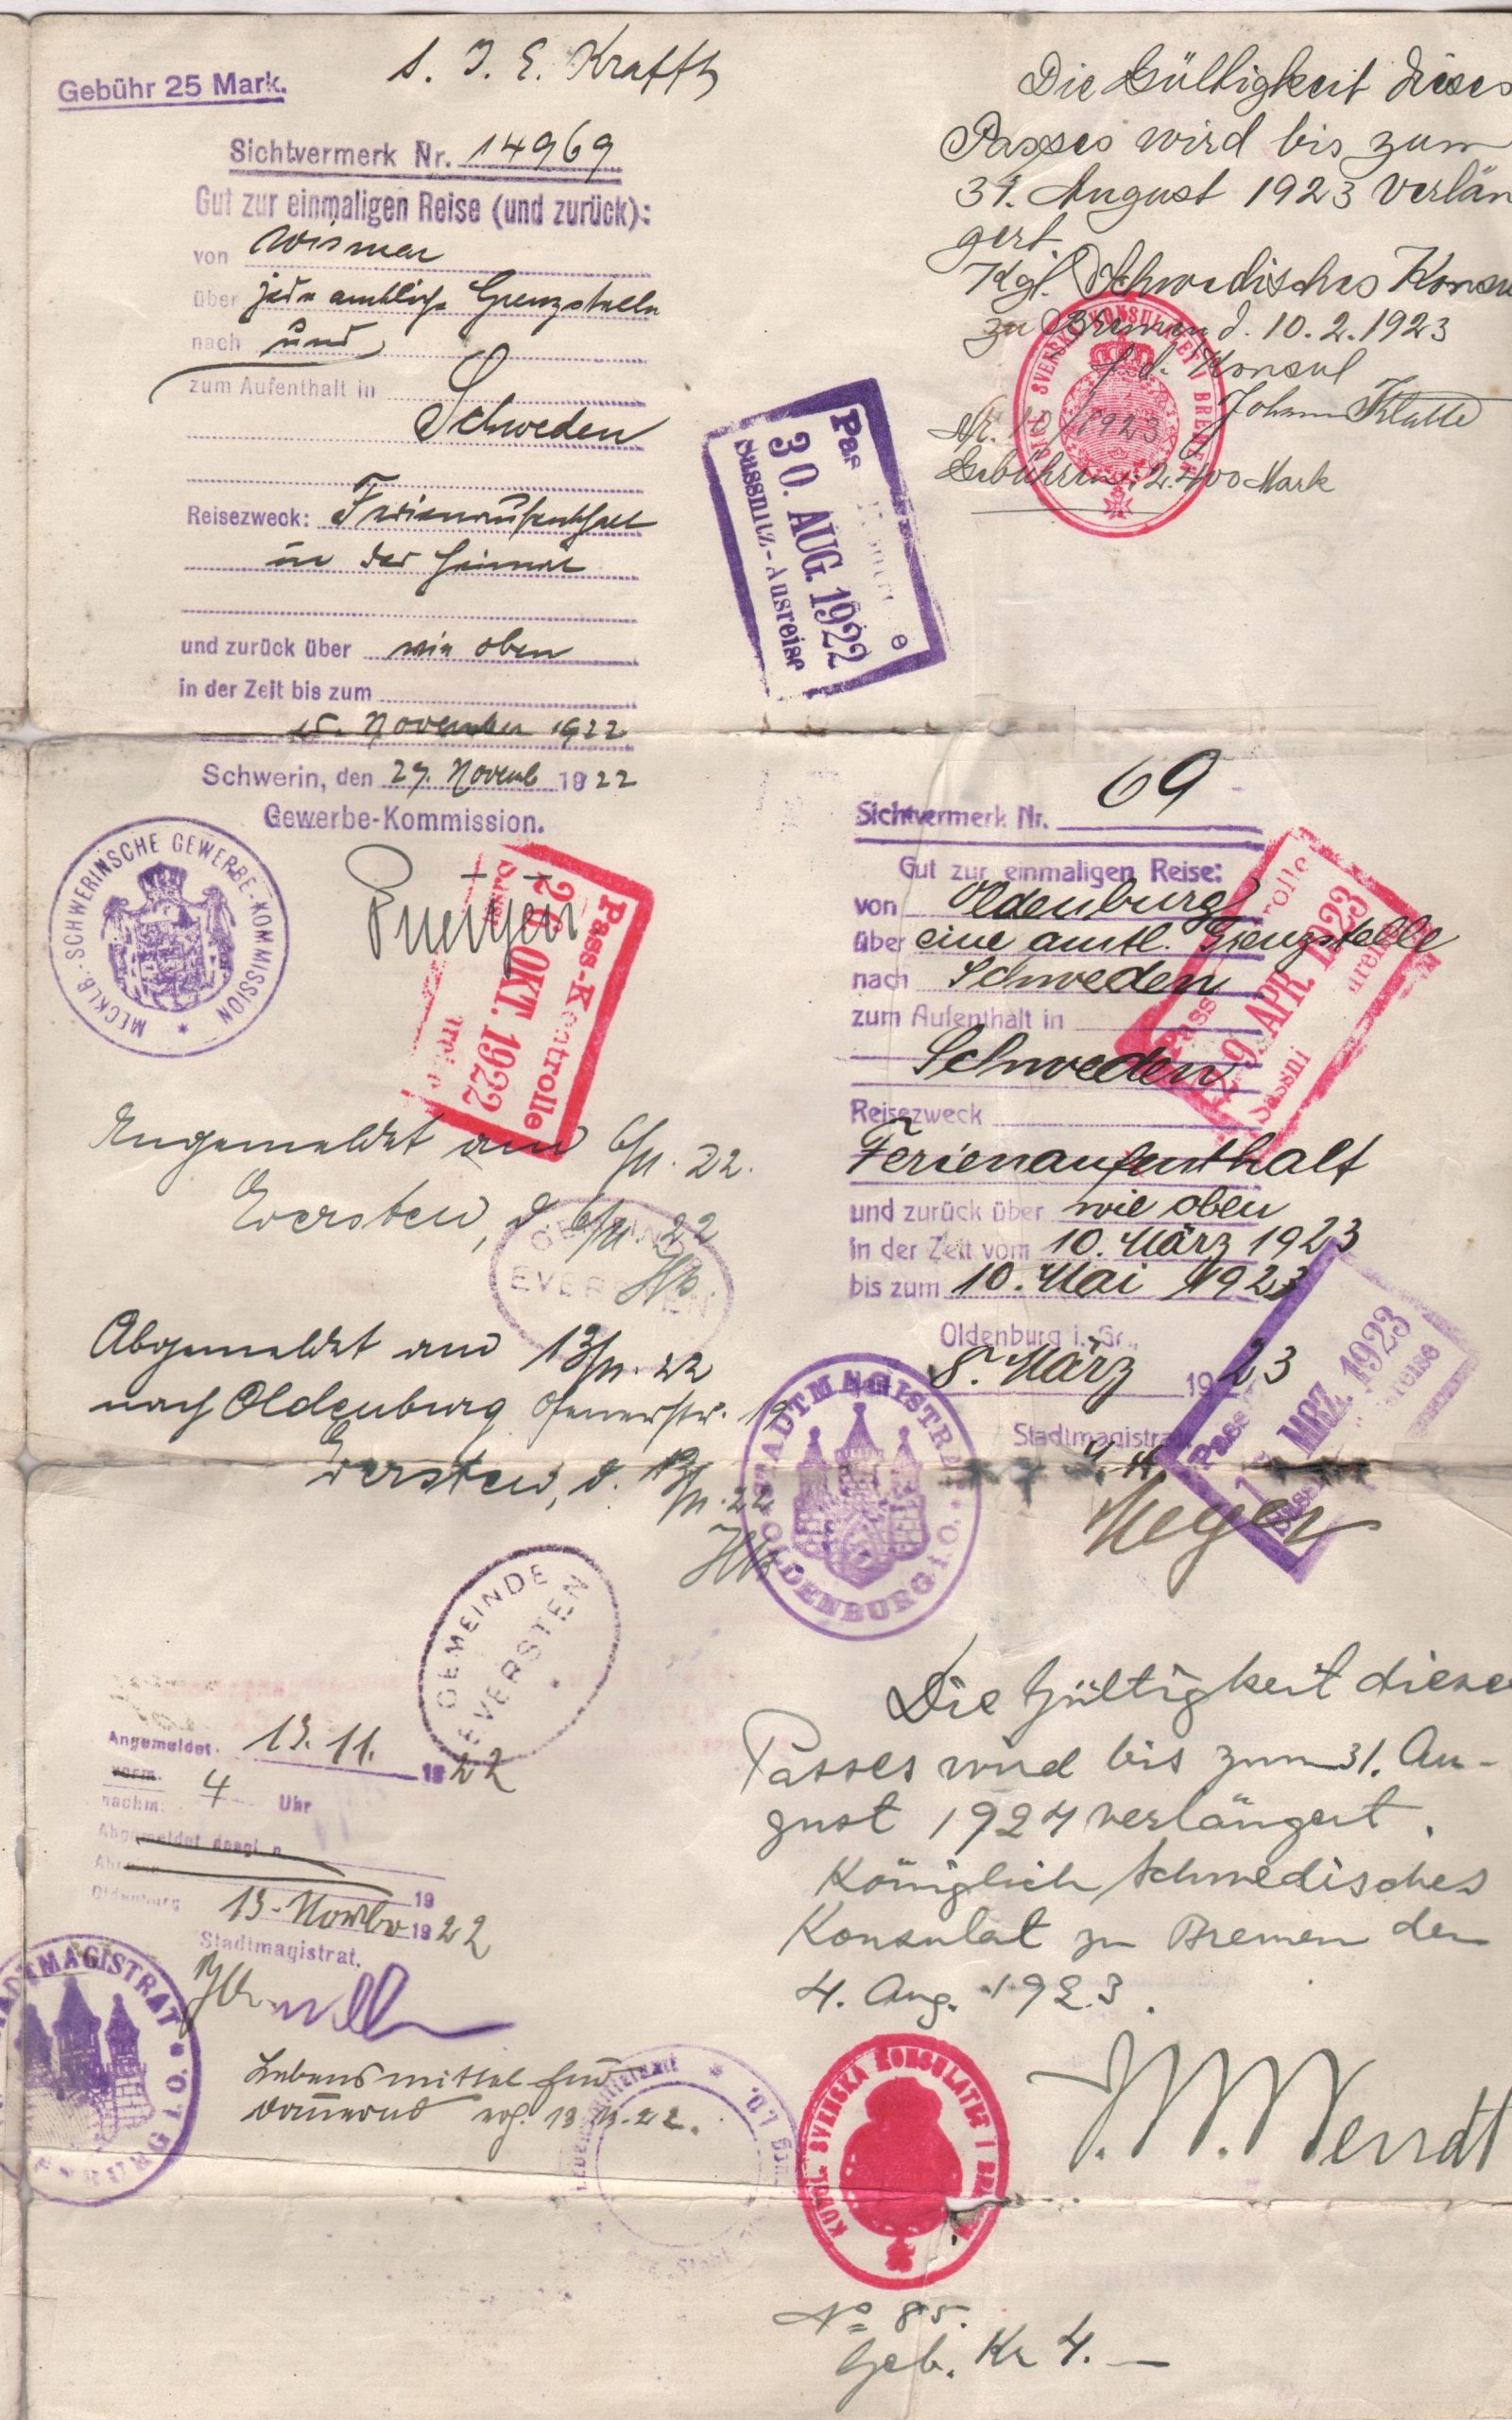 Gebühr 25 Mark.
S. J. E. Krafft
Sichtvermerk Nr. 14969
Gut zur einmaligen Reise (und zurück):
von Wismar
über jede amtliche Grenzstelle
nach und
zum Aufenthalt in
Schweden
Reisezweck: Ferienaufenthalt
in der Heimat
und zurück über wie oben
in der Zeit bis zum
15. November 1922
Schwerin, den 29. Novemb 1922
Gewerbe-Kommission.
MECKLB.-SCHWERINSCHE GEWERBE-KOMMISSION
Pass-Kontrolle
20 OKT. 1922
Angemeldet am 6/11. 22.
Eversten, d. 6/11. 22
GEMEINDE
EVERSTEN
Abgemeldet am 13/11. 22
nach Oldenburg 19
Eversten, d. 13/11. 22
GEMEINDE
EVERSTEN
Angemeldet 13. 11. 1922
vorm.
nachm. 4 Uhr
Abgemeldet
19
Oldenburg 13. Novbr 1922
Stadtmagistrat.
STADTMAGISTRAT OLDENBURG i. O.
Lebensmittel für
13 11. 22.
Die Gültigkeit dieses
Passes wird bis zum
31. August 1923 verlän
gert.
Kgl. Schwedisches Konsu
zu Bremen d. 10. 2. 1923
f. d. Konsul
Johann Klatte
Nr. 10/1923
Gebühren: 2.400 Mark
SVENSKA KONSULATET I BREMEN
Pas
30. AUG. 1922
Sassnitz-Ausreise
Sichtvermerk Nr. 69
Gut zur einmaligen Reise:
von Oldenburg
über eine amtl. Grenzstelle
nach Schweden
zum Aufenthalt in
Schweden
Reisezweck
Ferienaufenthalt
und zurück über wie oben
in der Zeit vom 10. März 1923
bis zum 10. Mai 1923
Oldenburg i. Gr.,
8. März 1923
Stadtmagistrat
Meyer
STADTMAGISTRAT OLDENBURG i. O.
Pass rolle
9. APR. 1923
Sassni
Pass
MRZ. 1923
Die Gültigkeit dieses
Passes wird bis zum 31. Au-
gust 1924 verlängert.
Königlich Schwedisches
Konsulat zu Bremen den
4. Aug. 1923.
KUNGL. SVENSKA KONSULATET I BR
No 85.
Geb. Kr 4.—